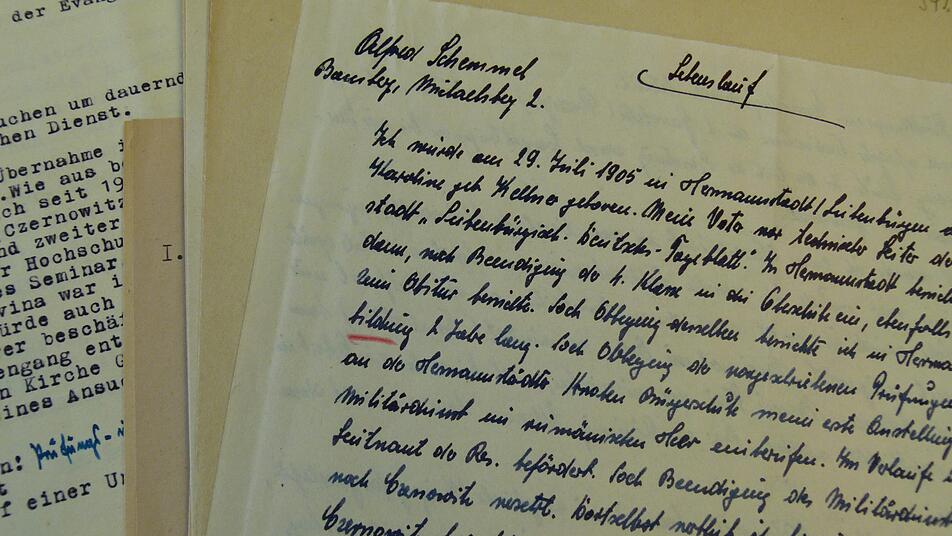 der Evang
uchen um dauernd
hen Dienst.
Übernahme i
.Wie aus be
ch seit 19
Czernowitz
nd zweiter
r Hochschu
es Seminar
vina war i
ürde auch
er beschäf
engang ent
n Kirche G
ines Ansuc
n: Prüfungs-
f einer Ur
I.
Alfred Schemmel
Bamberg, Michaelsberg 2.
Lebenslauf
Ich wurde am 29. Juli 1905 in Hermannstadt/Siebenbürgen
Karoline geb Kellner geboren. Mein Vater war technischer Leiter de
stadt „Siebenbürgisch-Deutsches-Tageblatt". In Hermannstadt besuch
dann, nach Beendigung der 4. Klasse in die Oberschule ein, ebenfalls
zum Abitur besuchte. Nach Ablegung desselben besuchte ich in Herman
bildung 2 Jahre lang. Nach Ablegung der vorgeschriebenen Prüfungen
an der Hermannstädter Knaben Bürgerschule meine erste Anstellung
Militärdienst im rumänischen Heer einberufen. Im Verlaufe
Leutnant der Res. befördert. Nach Beendigung des Militärdienst
nach Czernowitz versetzt. Dortselbst
Czernowitz